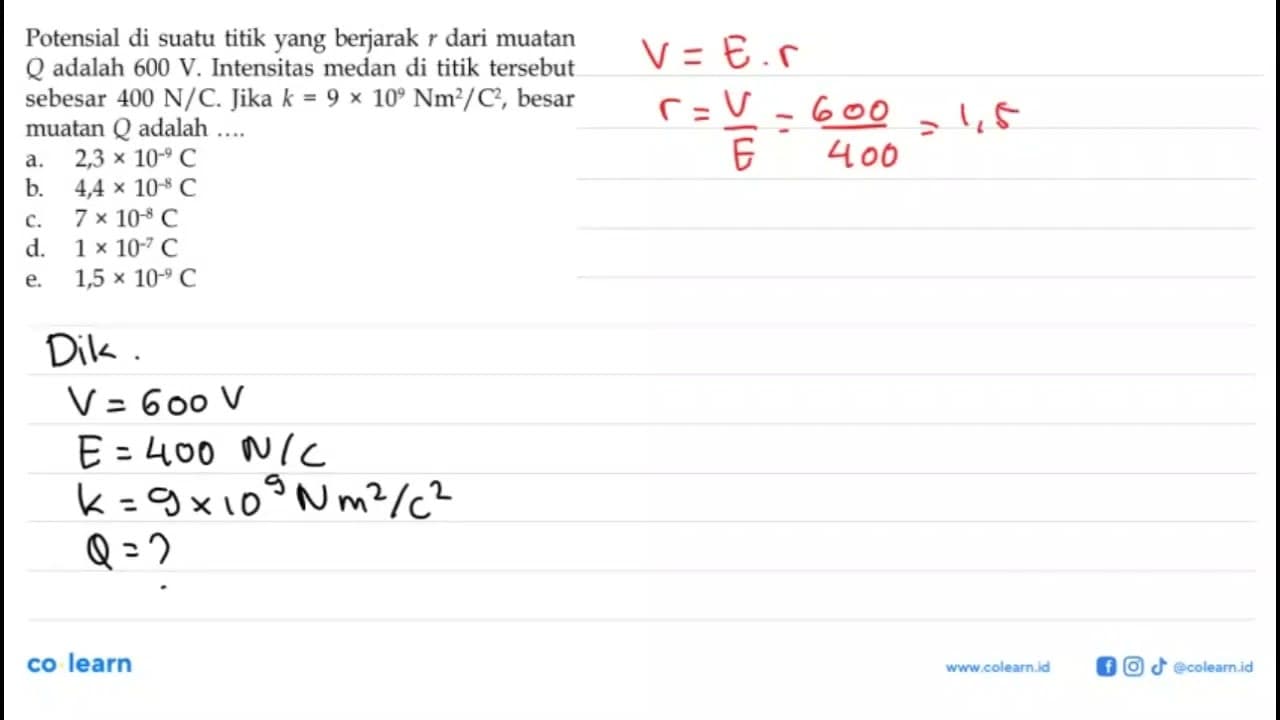 Potensial di suatu titik yang berjarak r dari muatan
Q adalah 600 V. Intensitas medan di titik tersebut
sebesar 400 N/C. Jika k = 9 × 10⁹ Nm²/C², besar
muatan Q adalah ....
a. 2,3 × 10⁻⁹ C
b. 4,4 × 10⁻⁸ C
c. 7 × 10⁻⁸ C
d. 1 × 10⁻⁷ C
e. 1,5 × 10⁻⁹ C
V = E . r
r = V/E = 600/400 = 1,5
Dik .
V = 600 V
E = 400 N/C
k = 9 × 10⁹ Nm²/C²
Q = ?
co learn
www.colearn.id
@colearn.id